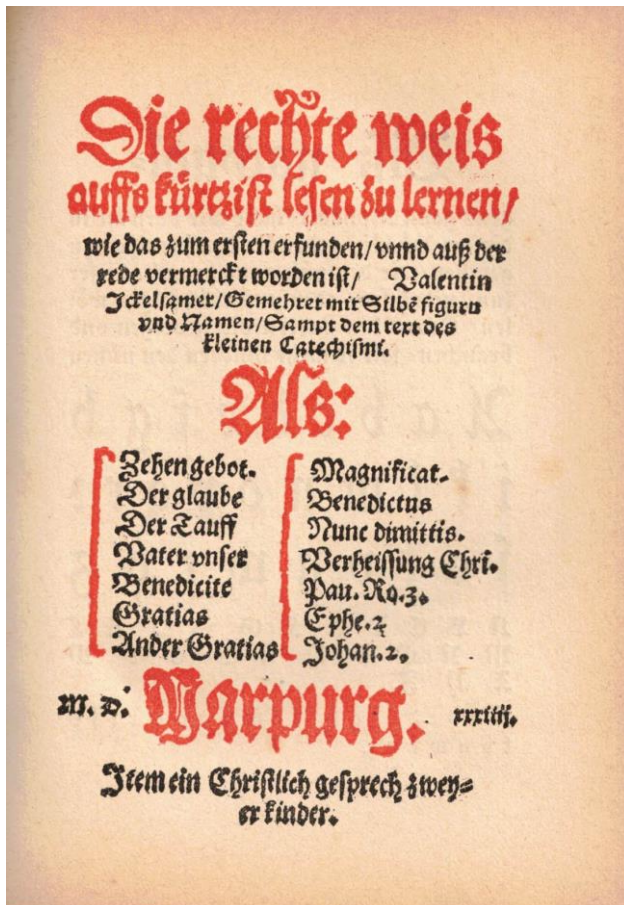 Die rechte weis
auffs kürtzist lesen zu lernen/
wie das zum ersten erfunden/ vnnd auß der
rede vermerckt worden ist/ Valentin
Ickelsamer/ Gemehret mit Silbē figurn
vnd Namen/ Sampt dem text des
kleinen Catechismi.
Als:
Zehen gebot.
Der glaube
Der Tauff
Vater vnser
Benedicite
Gratias
Ander Gratias
Magnificat.
Benedictus
Nunc dimittis.
Verheissung Chri.
Pau. Ro. 3.
Ephe. 2
Johan. 2.
M. D. Marpurg. xxxiiij.
Item ein Christlich gesprech zwey=
er kinder.